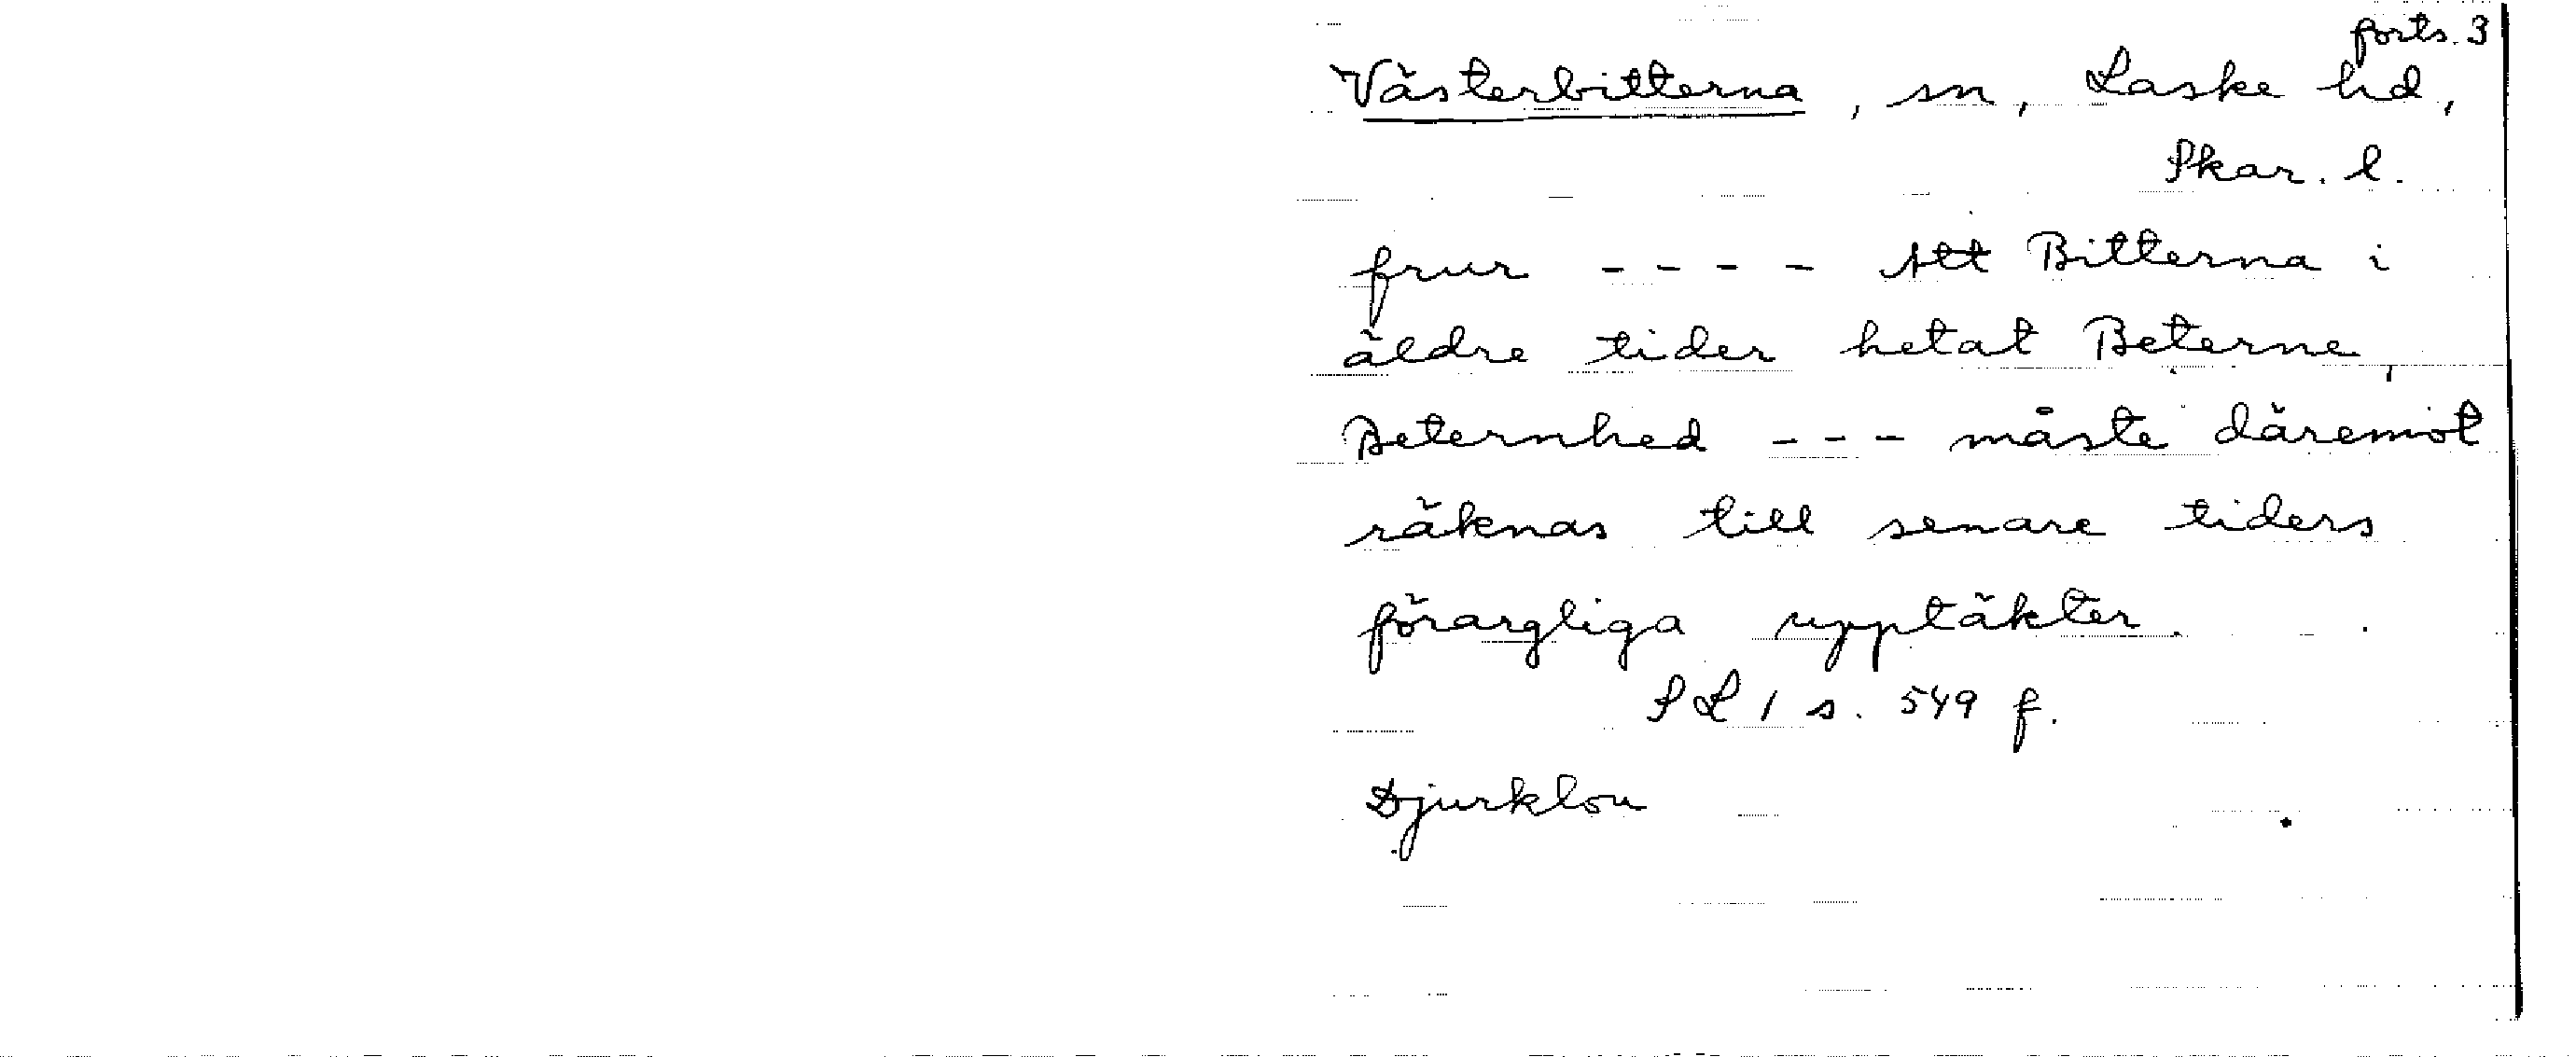 forts. 3
Västerbitterna, sn, Laske hd,
Skar. l.
frur - - - - Att Bitterna i
äldre tider hetat Beterne,
Beternhed - - - måste däremot
räknas till senare tiders
förargliga upptäkter.
SL 1 s. 549 f.
Djurklou